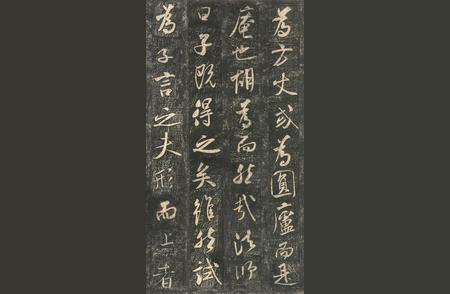 為方丈或為圓廬而是
庵也胡為而然哉法師
曰子既得之矣雖然試
為子言之夫形而上者